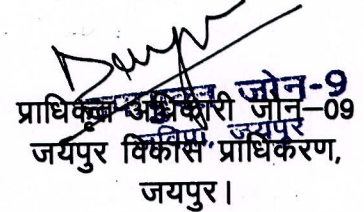 जोन-9
प्राधिकृत अधिकारी जोन–09
जविप्रा, जयपुर
जयपुर विकास प्राधिकरण,
जयपुर।